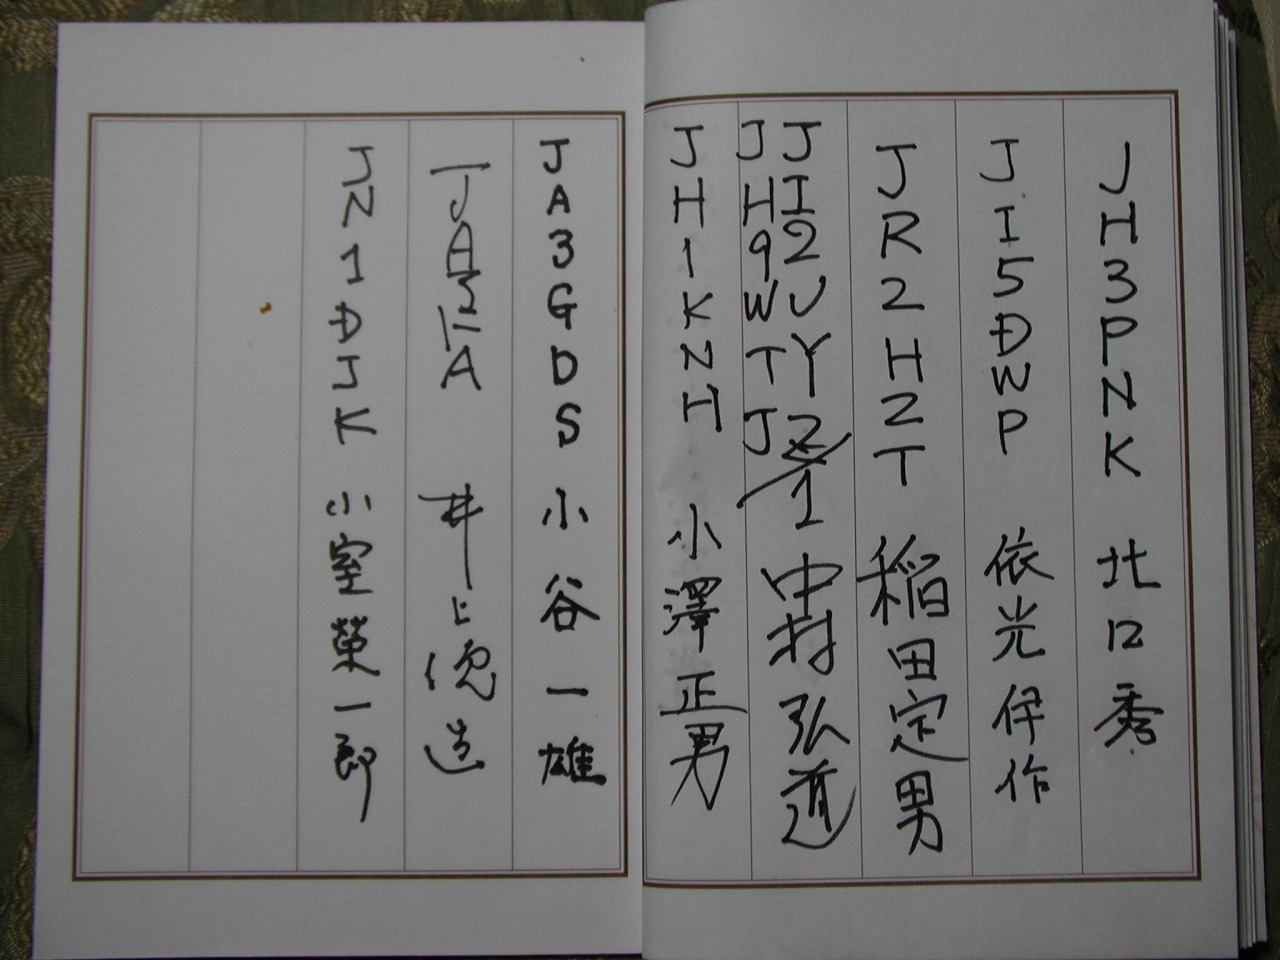 JH3PNK 北口 秀
JI5DWP 依光 伊作
JR2HZT 稲田定男
JI2UYZ/1 中村 弘道
JH9WTJ
JH1KNH 小澤正男
JA3GDS 小谷一雄
井上 造
JN1DJK 小室榮一郎